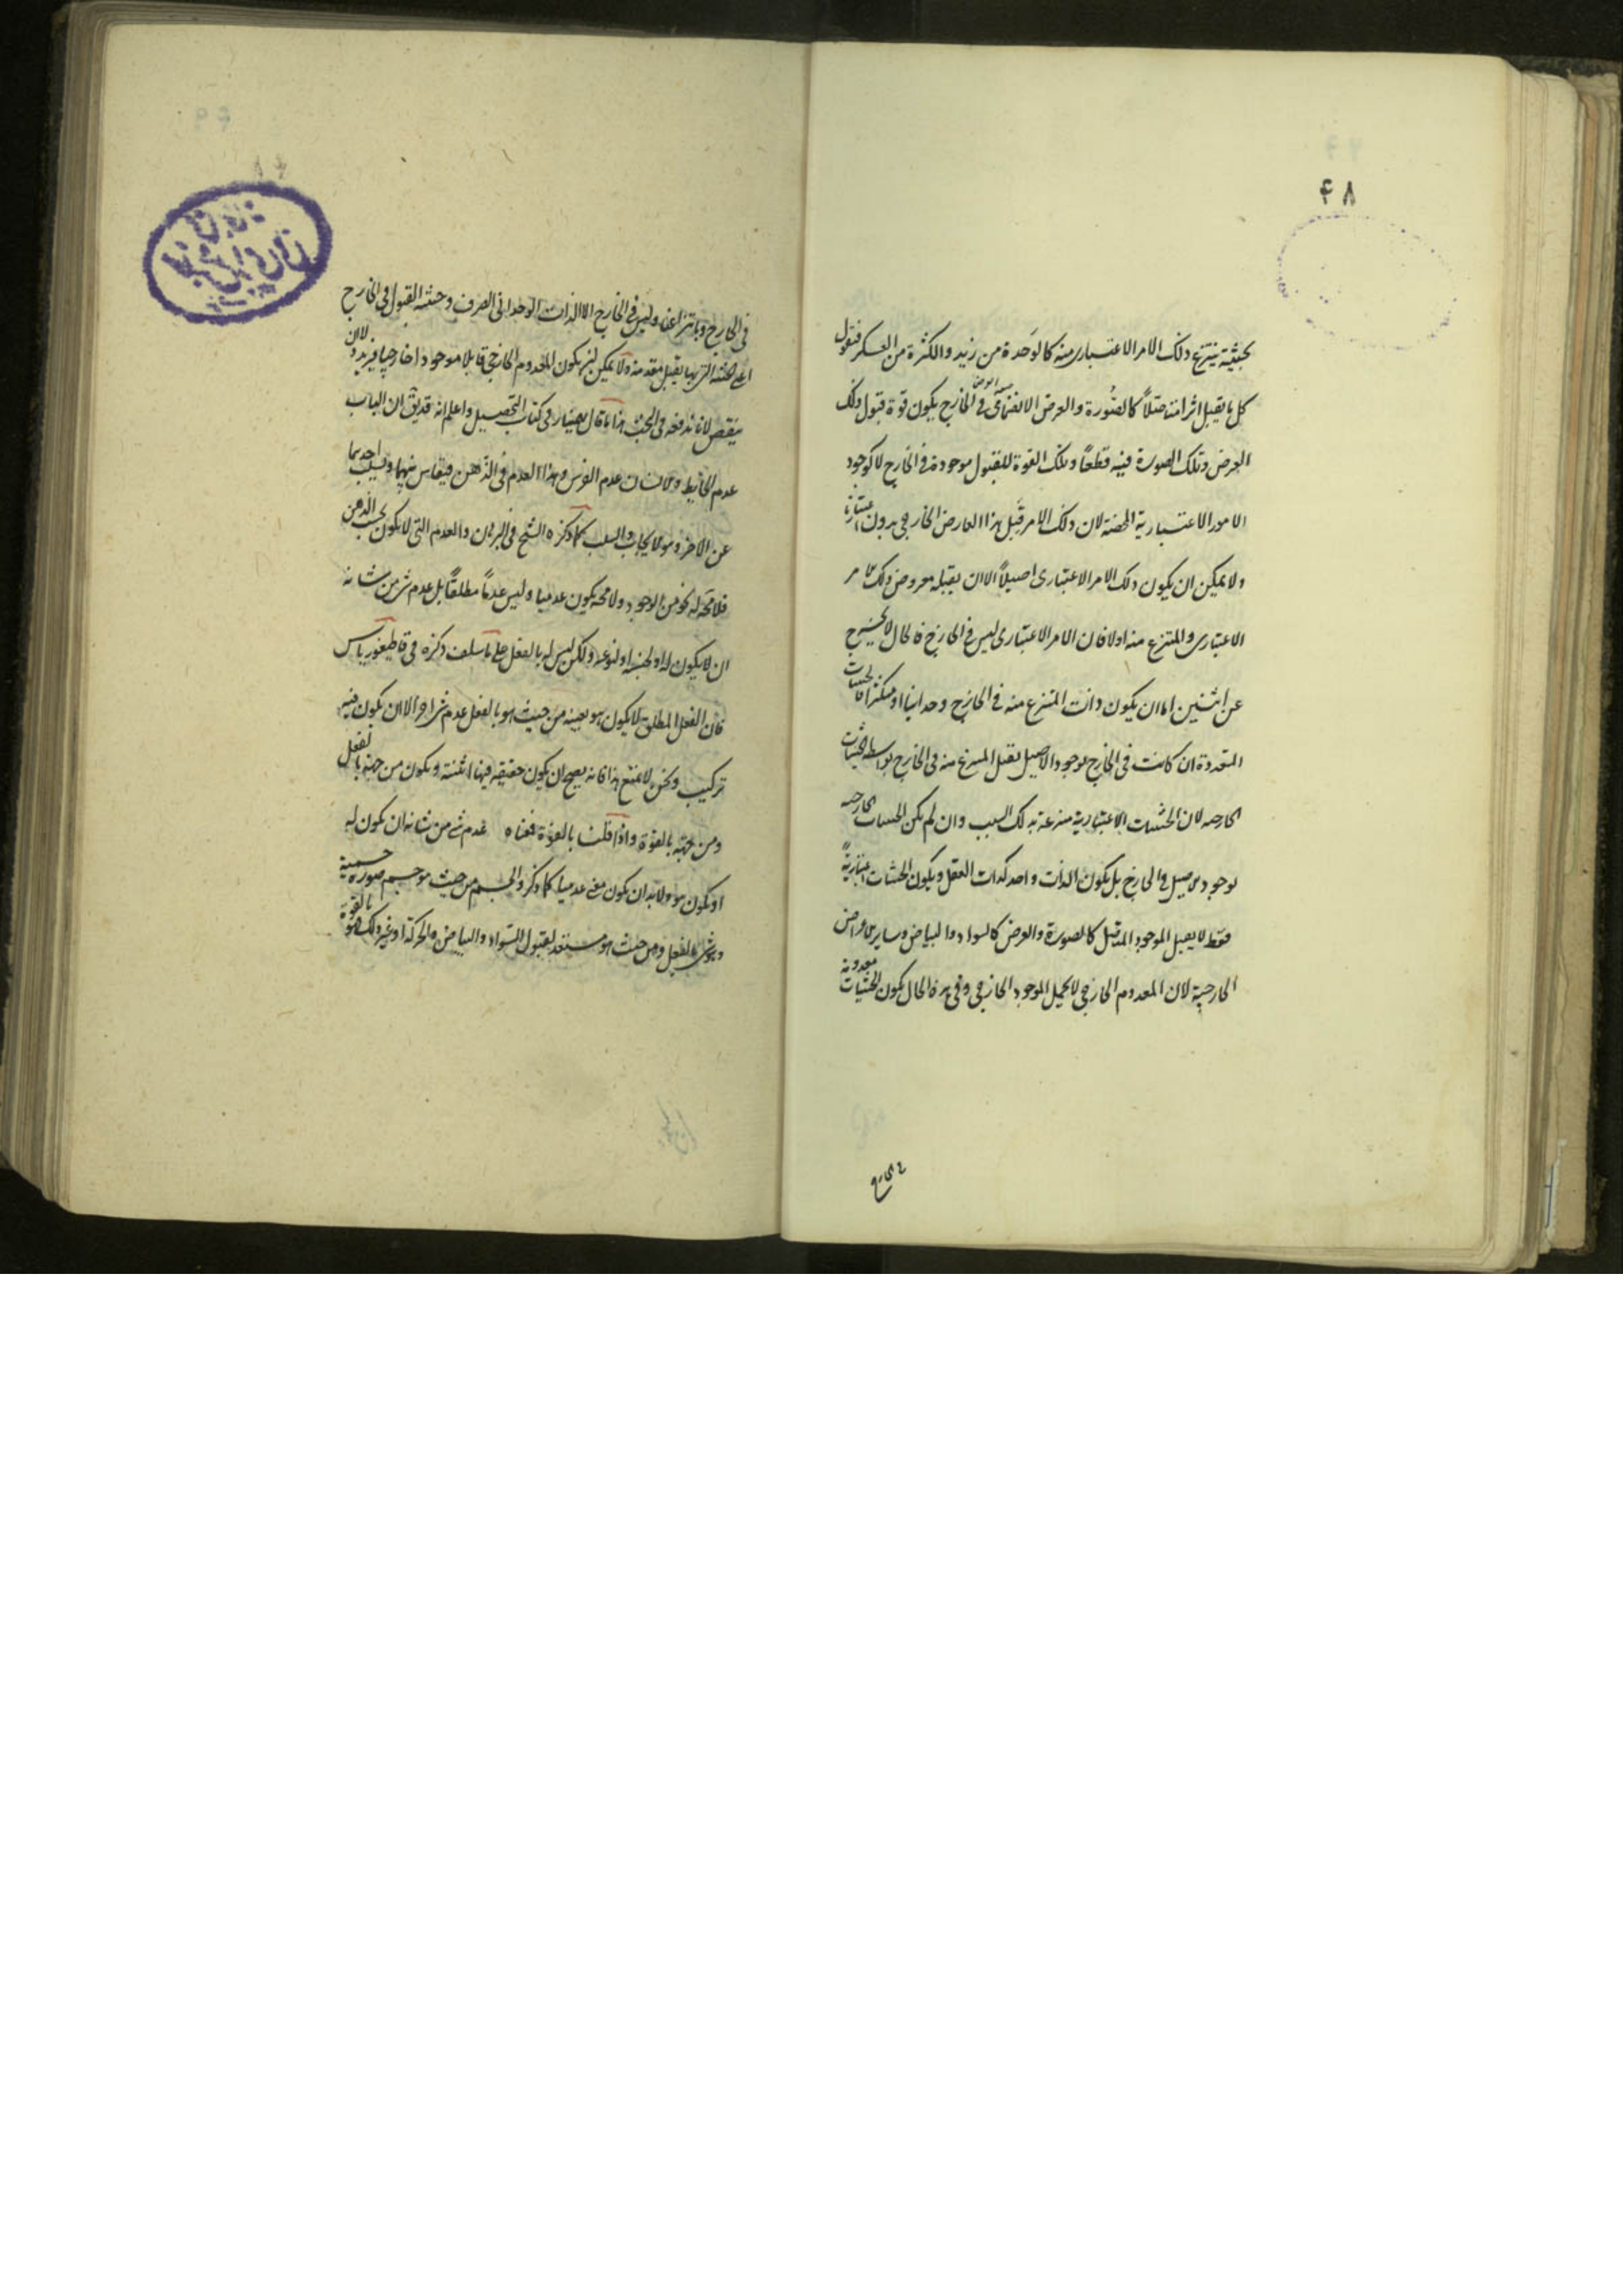 ۴۸
بحیثیة ینتزع ذلک الامر الاعتباری منه کالوحدة من زید والکثرة من العسکر فنقول
کل ما یقبل اثرا متاصّلاً کالصّورة والعرض الانضمامی فی الخارج یکون قوة قبول ذلک
العرض وتلک الصورة فیه قطعاً وتلک القوة للقبول موجودة فی الخارج لا کوجود
الامور الاعتباریة المحضة لان ذلک الامر قبل هذا العارض الخارجی بدون اعتبارنا
ولا یمکن ان یکون ذلک الامر الاعتباری اصیلاً الا ان یقبله معروض ذلک الامر
الاعتباری والمنتزع منه اولا فان الامر الاعتباری لیس فی الخارج فالحال لا یخرج
عن اثنین اما ان یکون ذات المنتزع منه فی الخارج وحدانیا او متکثرا فالحیثیات
المتعددة ان کانت فی الخارج بوجود الاصیل یقبل المنتزع منه فی الخارج بواسطة الحیثیات
الخارجیة لان الحیثیات الاعتباریة منتزعة بذلک السبب وان لم یکن الحیثیات الخارجیة
بوجود الاصیل فی الخارج بل یکون الذات واحد کذات العقل ویکون الحیثیات اعتباریةً
فقط لا یقبل الموجود المتاصل کالصورة والعرض کالسواد والبیاض وسایر الاعراض
الخارجیة لان المعدوم الخارجی لا یحمل الموجود الخارجی وفی هذه الحال یکون الحیثیات معدومة
فی الخارج
فی الخارج وبانتزاعنا ولیس فی الخارج الا الذات الوحدانی الصرف وحیثیة القبول فی الخارج
اعنی الحیثیة التی بها یقبل مقدمة ولا یمکن ان یکون المعدوم الخارجی قابلا موجودا خارجیا
ینقص لانا ندفعه فی البحث هذا ما قال بهمنیار فی کتاب التحصیل واعلم انه قدیق ان الباب
عدم الحایط والانسان عدم الفرس وهذا العدم فی الذهن فیقاس بینهما ویسلب احدیهما
عن الاخر وهو الایجاب والسلب کما ذکره الشیخ فی البرهان والعدم التی لا یکون بحسب الذهن
فلا محة له نحو من الوجود ولا محة یکون عدمیا ولیس عدماً مطلقاً بل عدم شئ من شانه
ان لا یکون له او لجنسه او لنوعه ولکن لیس له بالفعل علی ما سلف ذکره فی قاطیغوریاس
فان الفعل المطلق لا یکون هو بعینه من حیث هو بالفعل عدم شئ اخر الا ان یکون فیه
ترکیب ونحن لا نمنع هذا فانه یصح ان یکون حقیقة فیها اثنینیة ویکون من جهة بالفعل
ومن جهة بالقوة واذا قلنا بالقوة فمعناه عدم شئ من شانه ان یکون له
او یکون هو ولا بد ان یکون معنی عدمیا کما ذکر والجسم من حیث هو جسم صورة جسمیة
وهو شئ بالفعل ومن حیث هو مستعد لقبول السواد والبیاض والحرکة او غیر ذلک فهو بالقوة